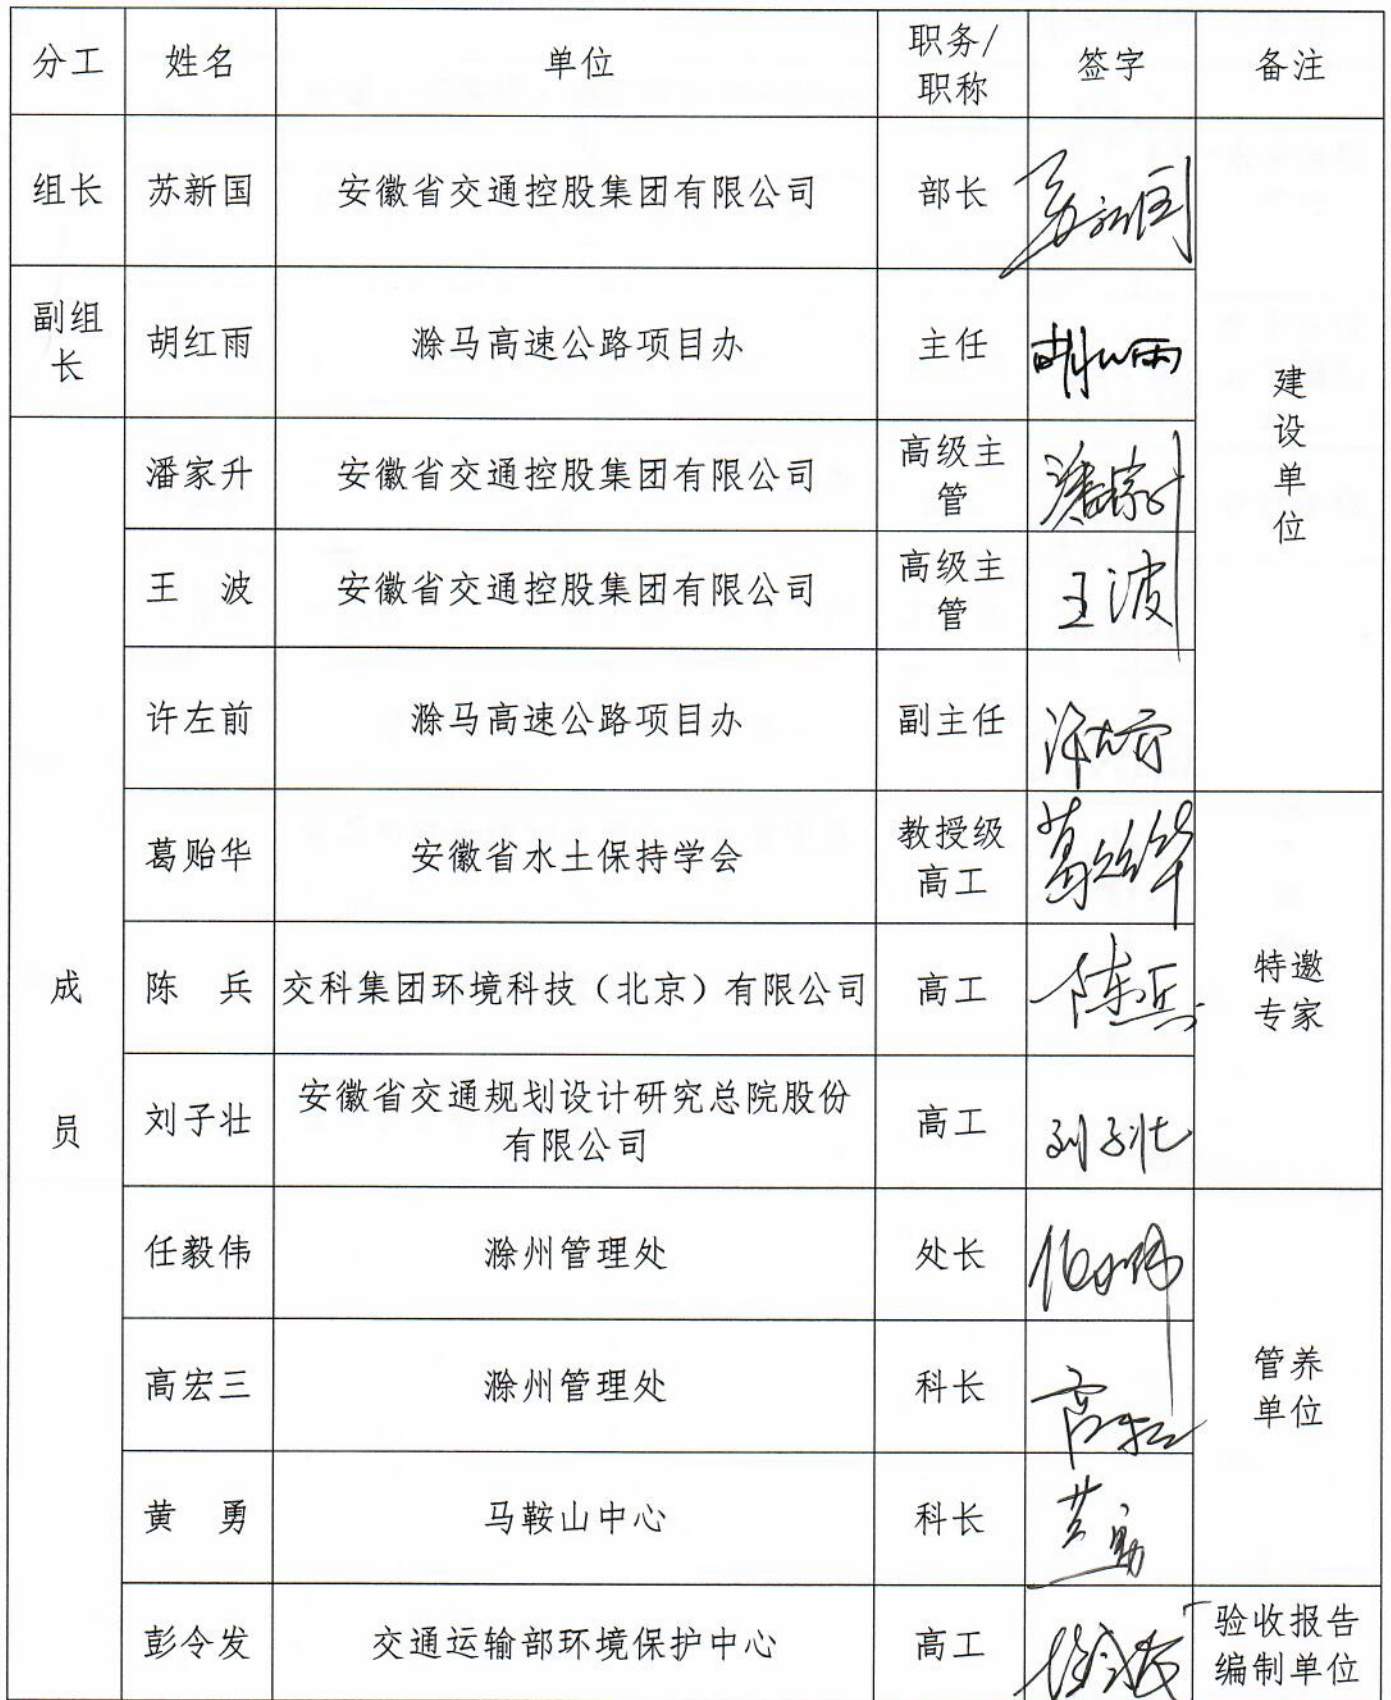 分工 姓名 单位 职务/职称 签字 备注
组长 苏新国 安徽省交通控股集团有限公司 部长 苏新国 建设单位
副组长 胡红雨 滁马高速公路项目办 主任 胡红雨
成员 潘家升 安徽省交通控股集团有限公司 高级主管 潘家升
王 波 安徽省交通控股集团有限公司 高级主管 王波
许左前 滁马高速公路项目办 副主任 许左前
葛贻华 安徽省水土保持学会 教授级高工 葛贻华 特邀专家
陈 兵 交科集团环境科技（北京）有限公司 高工 陈兵
刘子壮 安徽省交通规划设计研究总院股份有限公司 高工 刘子壮
任毅伟 滁州管理处 处长 任毅伟 管养单位
高宏三 滁州管理处 科长
黄 勇 马鞍山中心 科长 黄勇
彭令发 交通运输部环境保护中心 高工 彭令发 验收报告编制单位